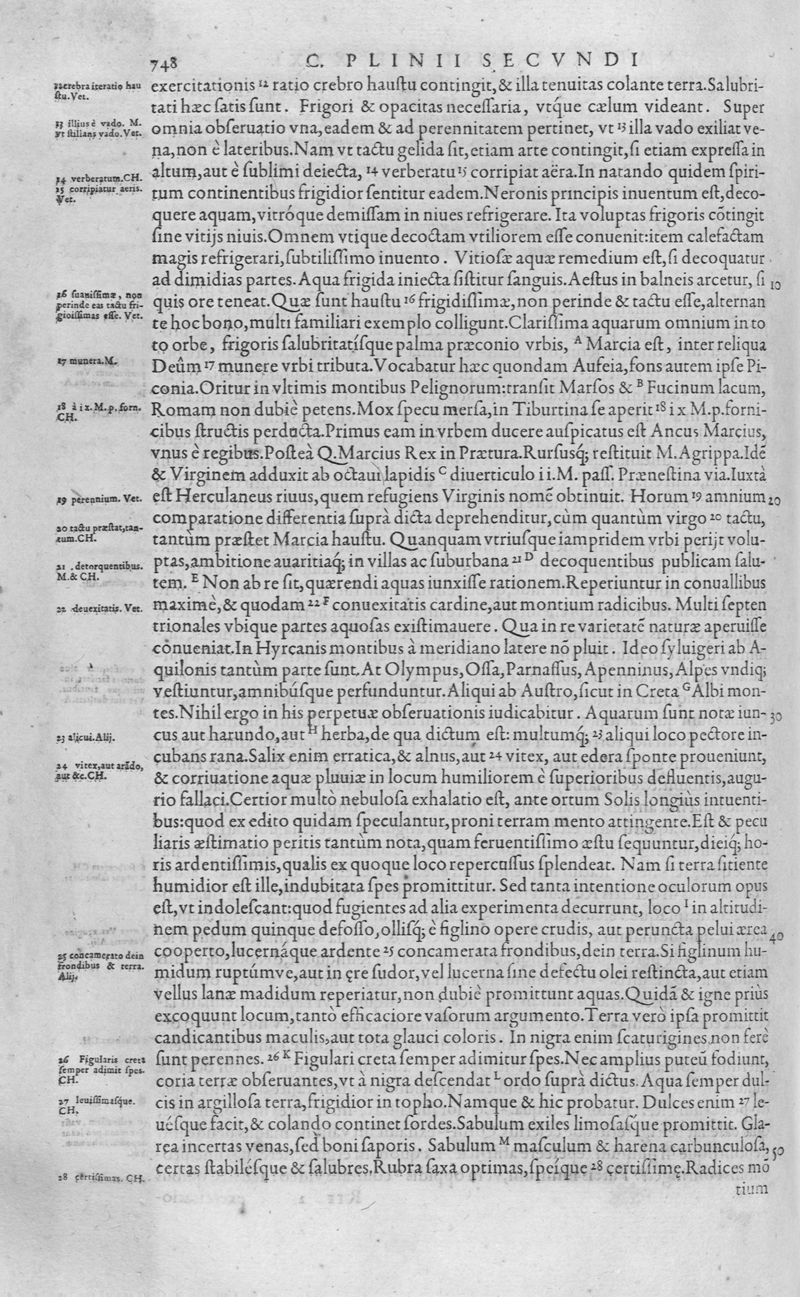 748 C. PLINII SECVNDI
exercitationis ¹² ratio crebro hauſtu contingit,& illa tenuitas colante terra.Salubri-
tati hæc ſatis ſunt. Frigori & opacitas neceſſaria, vtq́ue cælum videant. Super
omnia obſeruatio vna,eadem & ad perennitatem pertinet, vt ¹³ illa vado exiliat ve-
na,non è lateribus.Nam vt tactu gelida ſit,etiam arte contingit,ſi etiam expreſſa in
altum,aut è ſublimi deiecta, ¹⁴ verberatu ¹⁵ corripiat aëra.In natando quidem ſpiri-
tum continentibus frigidior ſentitur eadem.Neronis principis inuentum eſt,deco-
quere aquam,vitróque demiſſam in niues refrigerare. Ita voluptas frigoris cōtingit
ſine vitijs niuis.Omnem vtique decoctam vtiliorem eſſe conuenit:item calefactam
magis refrigerari,ſubtiliſſimo inuento. Vitioſæ aquæ remedium eſt,ſi decoquatur
ad dimidias partes.Aqua frigida iniecta ſiſtitur ſanguis.Aeſtus in balneis arcetur, ſi 10
quis ore teneat.Quæ ſunt hauſtu ¹⁶ frigidiſſimæ,non perinde & tactu eſſe,alternan
te hoc bono,multi familiari exemplo colligunt.Clariſſima aquarum omnium in to
to orbe, frigoris ſalubritatíſque palma præconio vrbis, ᴬ Marcia eſt, inter reliqua
Deûm ¹⁷ munere vrbi tributa.Vocabatur hæc quondam Aufeia,fons autem ipſe Pi-
conia.Oritur in vltimis montibus Pelignorum:tranſit Marſos & ᴮ Fucinum lacum,
Romam non dubiè petens.Mox ſpecu merſa,in Tiburtina ſe aperit ¹⁸ i x M.p.forni-
cibus ſtructis perducta.Primus eam in vrbem ducere auſpicatus eſt Ancus Marcius,
vnus è regibus.Poſteà Q.Marcius Rex in Prætura.Rurſuſq; reſtituit M.Agrippa.Idē
& Virginem adduxit ab octaui lapidis ᶜ diuerticulo i i.M. paſſ. Præneſtina via.Iuxtà
eſt Herculaneus riuus,quem refugiens Virginis nomē obtinuit. Horum ¹⁹ amnium 20
comparatione differentia ſuprà dicta deprehenditur,cùm quantùm virgo ²⁰ tactu,
tantùm præſtet Marcia hauſtu. Quanquam vtriuſque iampridem vrbi perijt volu-
ptas,ambitione auaritiaq́; in villas ac ſuburbana ²¹ ᴰ decoquentibus publicam ſalu-
tem. ᴱ Non ab re ſit,quærendi aquas iunxiſſe rationem.Reperiuntur in conuallibus
maximè,& quodam ²² ᶠ conuexitatis cardine,aut montium radicibus. Multi ſepten
trionales vbique partes aquoſas exiſtimauere. Qua in re varietatē naturæ aperuiſſe
cōnueniat.In Hyrcanis montibus à meridiano latere nō pluit. Ideo ſyluigeri ab A-
quilonis tantùm parte ſunt.At Olympus,Oſſa,Parnaſſus,Apenninus,Alpes vndiq;
veſtiuntur,amnibúſque perfunduntur.Aliqui ab Auſtro,ſicut in Creta ᴳ Albi mon-
tes.Nihil ergo in his perpetuæ obſeruationis iudicabitur. Aquarum ſunt notæ iun- 30
cus aut harundo,aut ᴴ herba,de qua dictum eſt: multumq́; ²³ aliqui loco pectore in-
cubans rana.Salix enim erratica,& alnus,aut ²⁴ vitex, aut edera ſponte proueniunt,
& corriuatione aquæ pluuiæ in locum humiliorem è ſuperioribus defluentis,augu-
rio fallaci.Certior multò nebuloſa exhalatio eſt, ante ortum Solis longiùs intuenti-
bus:quod ex edito quidam ſpeculantur,proni terram mento attingente.Eſt & pecu
liaris æſtimatio peritis tantùm nota,quam feruentiſſimo æſtu ſequuntur,dieiq́; ho-
ris ardentiſſimis,qualis ex quoque loco repercuſſus ſplendeat. Nam ſi terra ſitiente
humidior eſt ille,indubitata ſpes promittitur. Sed tanta intentione oculorum opus
eſt,vt indoleſcant:quod fugientes ad alia experimenta decurrunt, loco ᴵ in altitudi-
nem pedum quinque defoſſo,olliſq́; è figlino opere crudis, aut peruncta pelui ærea 40
cooperto,lucernáque ardente ²⁵ concamerata frondibus,dein terra.Si figlinum hu-
midum ruptúmve,aut in ęre ſudor,vel lucerna ſine defectu olei reſtincta,aut etiam
vellus lanæ madidum reperiatur,non dubiè promittunt aquas.Quidā & igne priùs
excoquunt locum,tantò efficaciore vaſorum argumento.Terra verò ipſa promittit
candicantibus maculis,aut tota glauci coloris. In nigra enim ſcaturigines non ferè
ſunt perennes. ²⁶ ᴷ Figulari creta ſemper adimitur ſpes.Nec amplius puteū fodiunt,
coria terræ obſeruantes,vt à nigra deſcendat ᴸ ordo ſuprà dictus. Aqua ſemper dul-
cis in argilloſa terra,frigidior in topho.Namque & hic probatur. Dulces enim ²⁷ le-
uéſque facit,& colando continet ſordes.Sabulum exiles limoſáſque promittit. Gla-
rea incertas venas,ſed boni ſaporis. Sabulum ᴹ maſculum & harena carbunculoſa, 50
certas ſtabiléſque & ſalubres.Rubra ſaxa optimas,ſpeíque ²⁸ certiſſimę.Radices mō
tium
12 crebra iteratio hau
ſtu.Vet.
13 illius è vado. M.
vt ſtilians vado.Vet.
14 verberatum.CH.
15 corripiatur aeris.
Vet.
16 ſuauiſſimæ, non
perinde eas tactu fri-
gioiſſimas eſſe. Vet.
17 munera.M.
18 à i x.M.p.forn.
CH.
19 perennium. Vet.
20 tactu præſtat,tan-
tum.CH.
21 .detorquentibus.
M.& CH.
22 deuexitatis. Vet.
23 alicui.Alij.
24 vitex,aut arūdo,
aut &c.CH.
25 concamerato dein
frondibus & terra.
Alij.
26 Figularis creta
ſemper adimit ſpes.
CH.
27 leuiſſimáſque.
CH.
28 certiſſimas. CH.